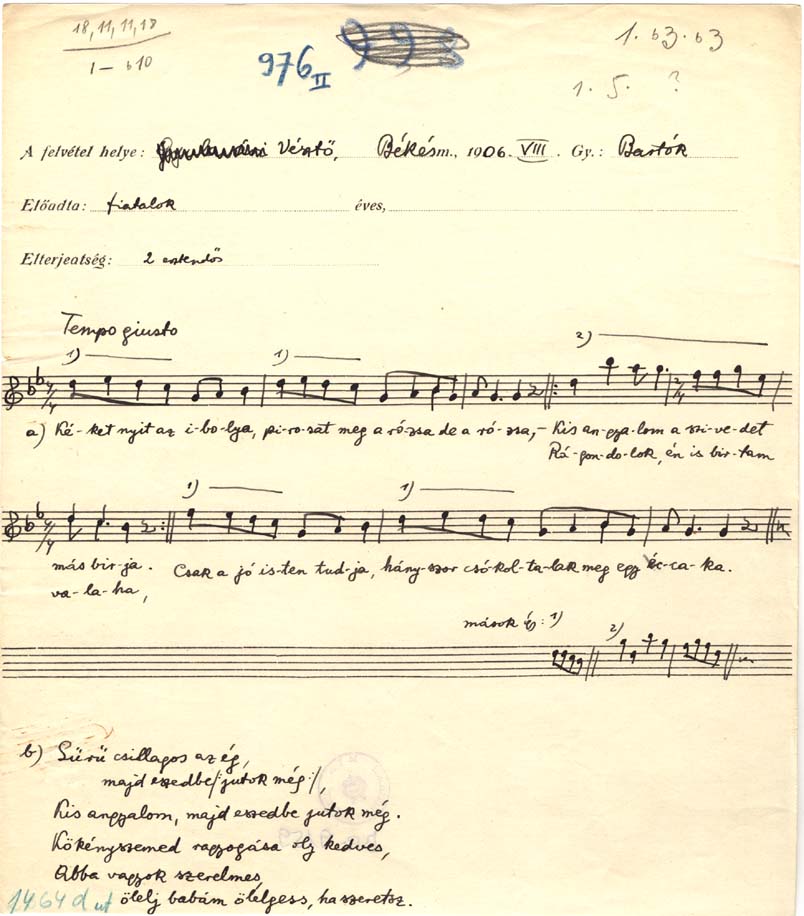 18, 11, 11, 18
I – b10
976 II
998
1. b3. b3
1. 5. ?
A felvétel helye: Vésztő, Békésm., 1906. VIII. Gy.: Bartók
Előadta: fiatalok éves,
Elterjeatség: 2 esztendős
Tempo giusto
1) 1) 2)
a) Ké-ket nyit az i-bo-lya, pi-ro-sat meg a ró-zsa de a ró-zsa, – Kis an-gya-lom a szi-ve-det
Rá-gon-do-lok, én is bir-tam
1) 1)
más bir-ja. Csak a jó is-ten tud-ja, hány-szor csó-kol-ta-lak meg egy éc-ca-ka.
va-la-ha,
mások így: 1) 2)
b) Sürü csillagos az ég,
majd eszedbe /: jutok még :/,
Kis angyalom, majd eszedbe jutok még.
Kökényszemed ragyogása oly kedves,
Abba vagyok szerelmes,
1464 d ut ölelj babám ölelgess, ha szeretsz.